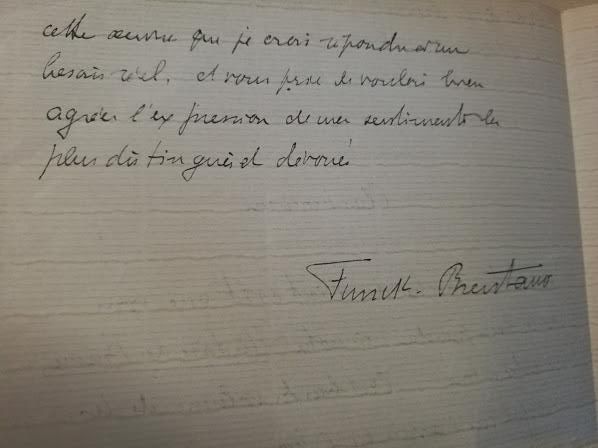 cette œuvre que je crois répondre à un
besoin réel, et vous prie de vouloir bien
agréer l'expression de mes sentiments les
plus distingués et dévoués
Funck-Brentano